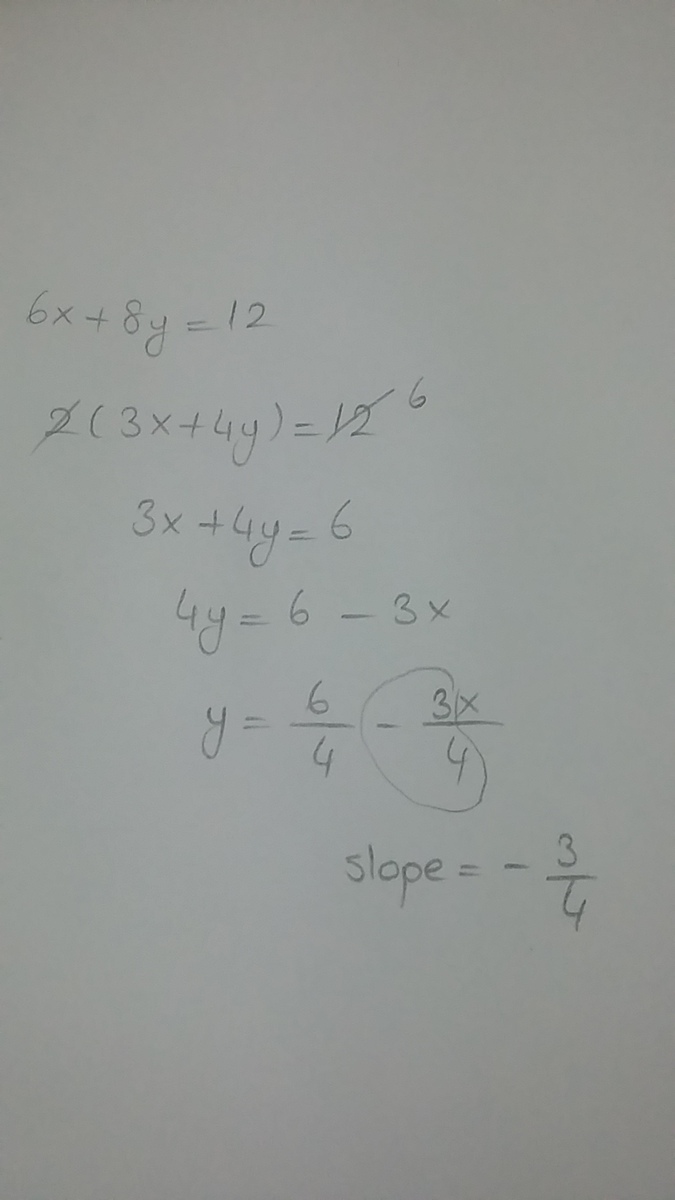 6x + 8y = 12
2(3x + 4y) = 12 6
3x + 4y = 6
4y = 6 - 3x
y = 6/4 - 3x/4
slope = - 3/4